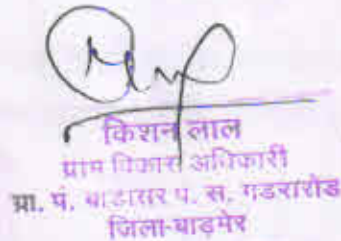 किशन लाल
ग्राम विकास अधिकारी
ग्रा. पं. प. स. गडरारोड
जिला-बाड़मेर